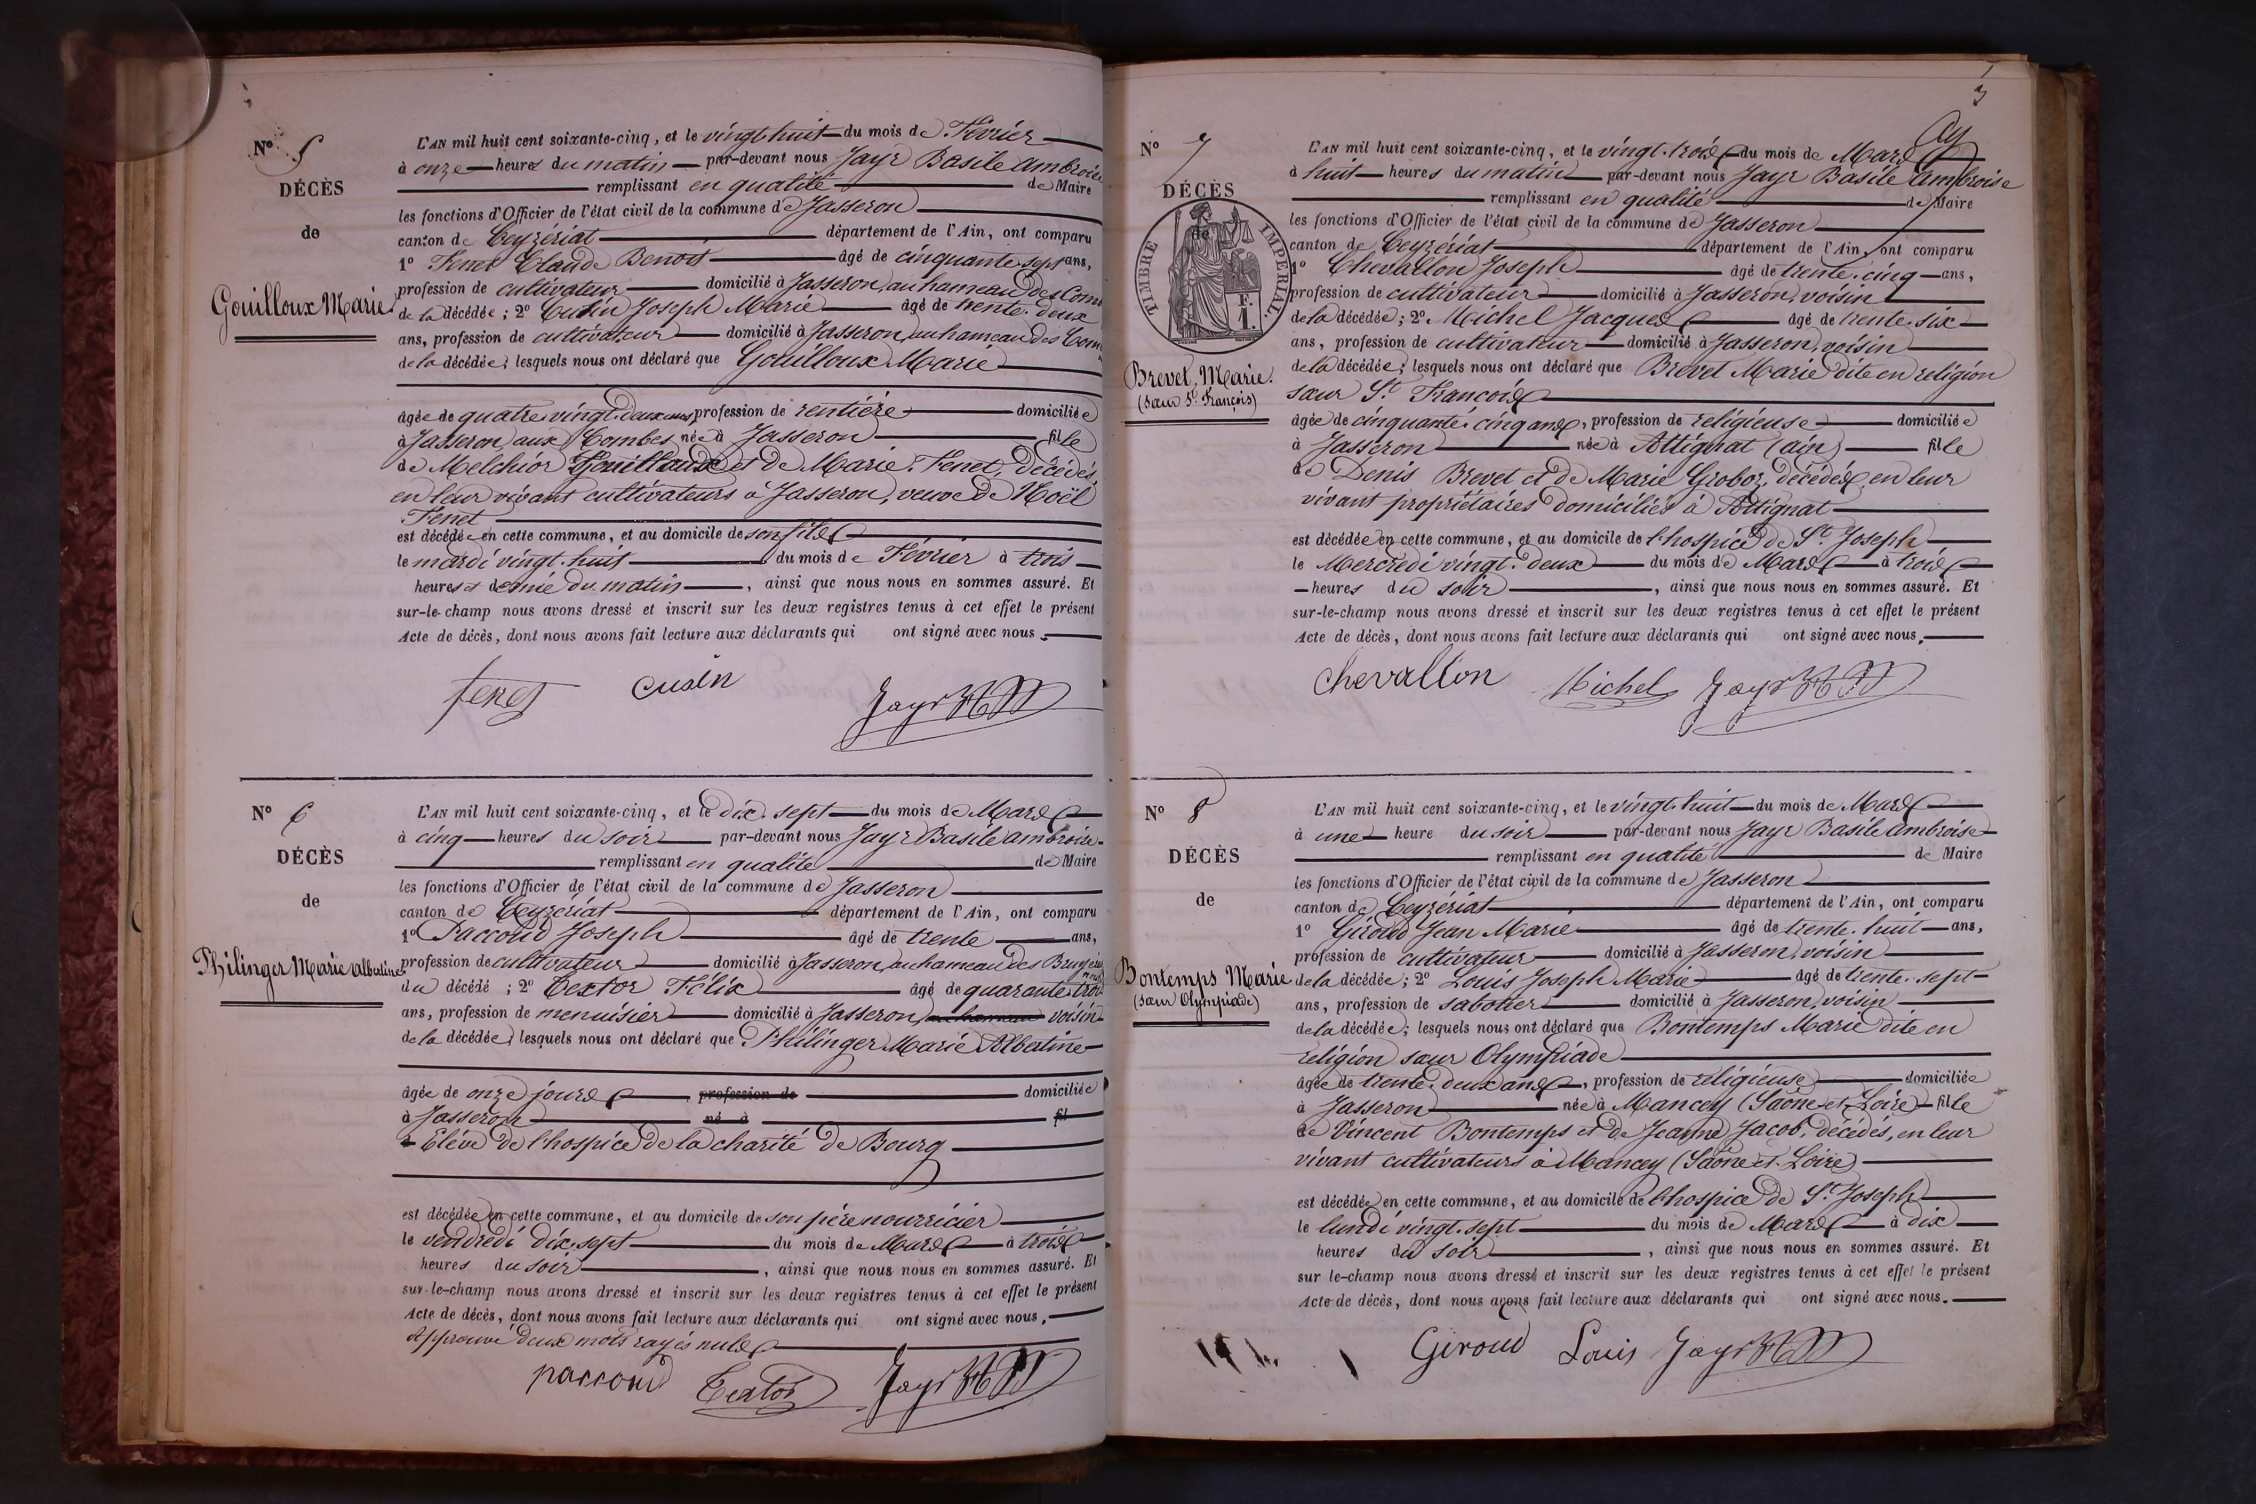 N° 5
DÉCÈS
de
Gouilloux Marie
L'AN mil huit cent soixante-cinq, et le vingt-huit du mois de Février
à onze heures du matin par-devant nous Jayr Basile Ambroise
remplissant en qualité de Maire
les fonctions d'Officier de l'état civil de la commune de Jasseron
canton de Ceyzériat département de l'Ain, ont comparu
1° Fenet Claude Benoit âgé de cinquante-sept ans,
profession de cultivateur domicilié à Jasseron, au hameau des
de la décédée; 2° Cusin Joseph Marie âgé de trente-deux
ans, profession de cultivateur domicilié à Jasseron, au hameau des
de la décédée, lesquels nous ont déclaré que Gouilloux Marie
âgée de quatre-vingt-deux ans, profession de rentière domiciliée
à Jasseron aux Combes née à Jasseron fille
de Melchior Gouilloux et de Marie Fenet, décédés,
en leur vivant cultivateurs à Jasseron, veuve de Noël
Fenet
est décédée en cette commune, et au domicile de son fils
le mardi vingt-huit du mois de Février à trois
heures & demie du matin, ainsi que nous nous en sommes assuré. Et
sur-le-champ nous avons dressé et inscrit sur les deux registres tenus à cet effet le présent
Acte de décès, dont nous avons fait lecture aux déclarants qui ont signé avec nous.
fenet cusin Jayr
N° 6
DÉCÈS
de
Philinger Marie Albertine
L'AN mil huit cent soixante-cinq, et le dix-sept du mois de Mars
à cinq heures du soir par-devant nous Jayr Basile Ambroise
remplissant en qualité de Maire
les fonctions d'Officier de l'état civil de la commune de Jasseron
canton de Ceyzériat département de l'Ain, ont comparu
1° Paccoud Joseph âgé de trente ans,
profession de cultivateur domicilié à Jasseron, au hameau des
du décédé; 2° Textor Félix âgé de quarante-trois
ans, profession de menuisier domicilié à Jasseron, au hameau voisin
de la décédée, lesquels nous ont déclaré que Philinger Marie Albertine
âgée de onze jours, profession de domiciliée
à Jasseron né à fil
de Elève de l'hospice de la charité de Bourg
est décédée en cette commune, et au domicile de son père nourricier
le vendredi dix-sept du mois de Mars à trois
heures du soir, ainsi que nous nous en sommes assuré. Et
sur-le-champ nous avons dressé et inscrit sur les deux registres tenus à cet effet le présent
Acte de décès, dont nous avons fait lecture aux déclarants qui ont signé avec nous.
Approuvé deux mots rayés nuls
paccoud Textor Jayr
3
N° 7
DÉCÈS
de
TIMBRE IMPÉRIAL
F.
1.
Brevet, Marie.
(Sœur St François)
L'AN mil huit cent soixante-cinq, et le vingt-trois du mois de Mars
à huit heures du matin par-devant nous Jayr Basile Ambroise
remplissant en qualité de Maire
les fonctions d'Officier de l'état civil de la commune de Jasseron
canton de Ceyzériat département de l'Ain, ont comparu
1° Chevallon Joseph âgé de trente-cinq ans,
profession de cultivateur domicilié à Jasseron, voisin
de la décédée; 2° Michel Jacques âgé de trente-six
ans, profession de cultivateur domicilié à Jasseron, voisin
de la décédée, lesquels nous ont déclaré que Brevet Marie dite en religion
sœur St François
âgée de cinquante-cinq ans, profession de religieuse domiciliée
à Jasseron née à Attignat (ain) fille
de Denis Brevet et de Marie Groboz, décédés, en leur
vivant propriétaires domiciliés à Attignat
est décédée en cette commune, et au domicile de l'hospice de St Joseph
le Mercredi vingt-deux du mois de Mars à trois
heures du soir, ainsi que nous nous en sommes assuré. Et
sur-le-champ nous avons dressé et inscrit sur les deux registres tenus à cet effet le présent
Acte de décès, dont nous avons fait lecture aux déclarants qui ont signé avec nous.
chevallon Michel Jayr
N° 8
DÉCÈS
de
Bontemps Marie
(sœur Olympiade)
L'AN mil huit cent soixante-cinq, et le vingt-huit du mois de Mars
à une heure du soir par-devant nous Jayr Basile Ambroise
remplissant en qualité de Maire
les fonctions d'Officier de l'état civil de la commune de Jasseron
canton de Ceyzériat département de l'Ain, ont comparu
1° Giroud Jean Marie âgé de trente-huit ans,
profession de cultivateur domicilié à Jasseron, voisin
de la décédée; 2° Louis Joseph Marie âgé de trente-sept
ans, profession de sabotier domicilié à Jasseron, voisin
de la décédée; lesquels nous ont déclaré que Bontemps Marie dite en
religion sœur Olympiade
âgée de trente-deux ans, profession de religieuse domiciliée
à Jasseron née à Mancey (Saône-et-Loire) fille
de Vincent Bontemps et de Jeanne Jacob, décédés, en leur
vivant cultivateurs à Mancey (Saône-et-Loire)
est décédée en cette commune, et au domicile de l'hospice de St Joseph
le lundi vingt-sept du mois de Mars à dix
heures du soir, ainsi que nous nous en sommes assuré. Et
sur le-champ nous avons dressé et inscrit sur les deux registres tenus à cet effet le présent
Acte de décès, dont nous avons fait lecture aux déclarants qui ont signé avec nous.
Giroud Louis Jayr